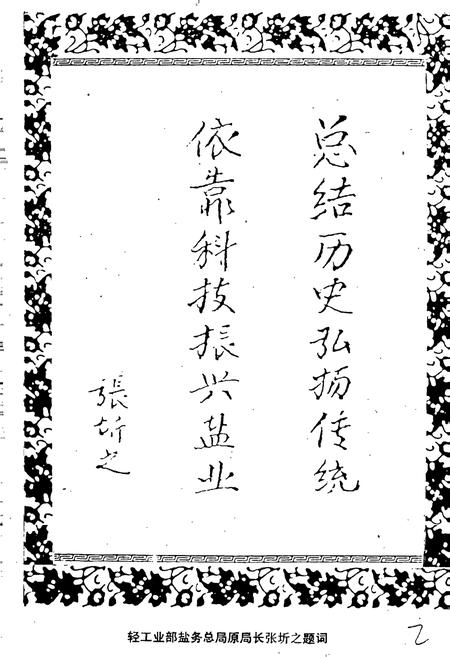 总结历史弘扬传统
依靠科技振兴盐业
張圻之
轻工业部盐务总局原局长张圻之题词
2